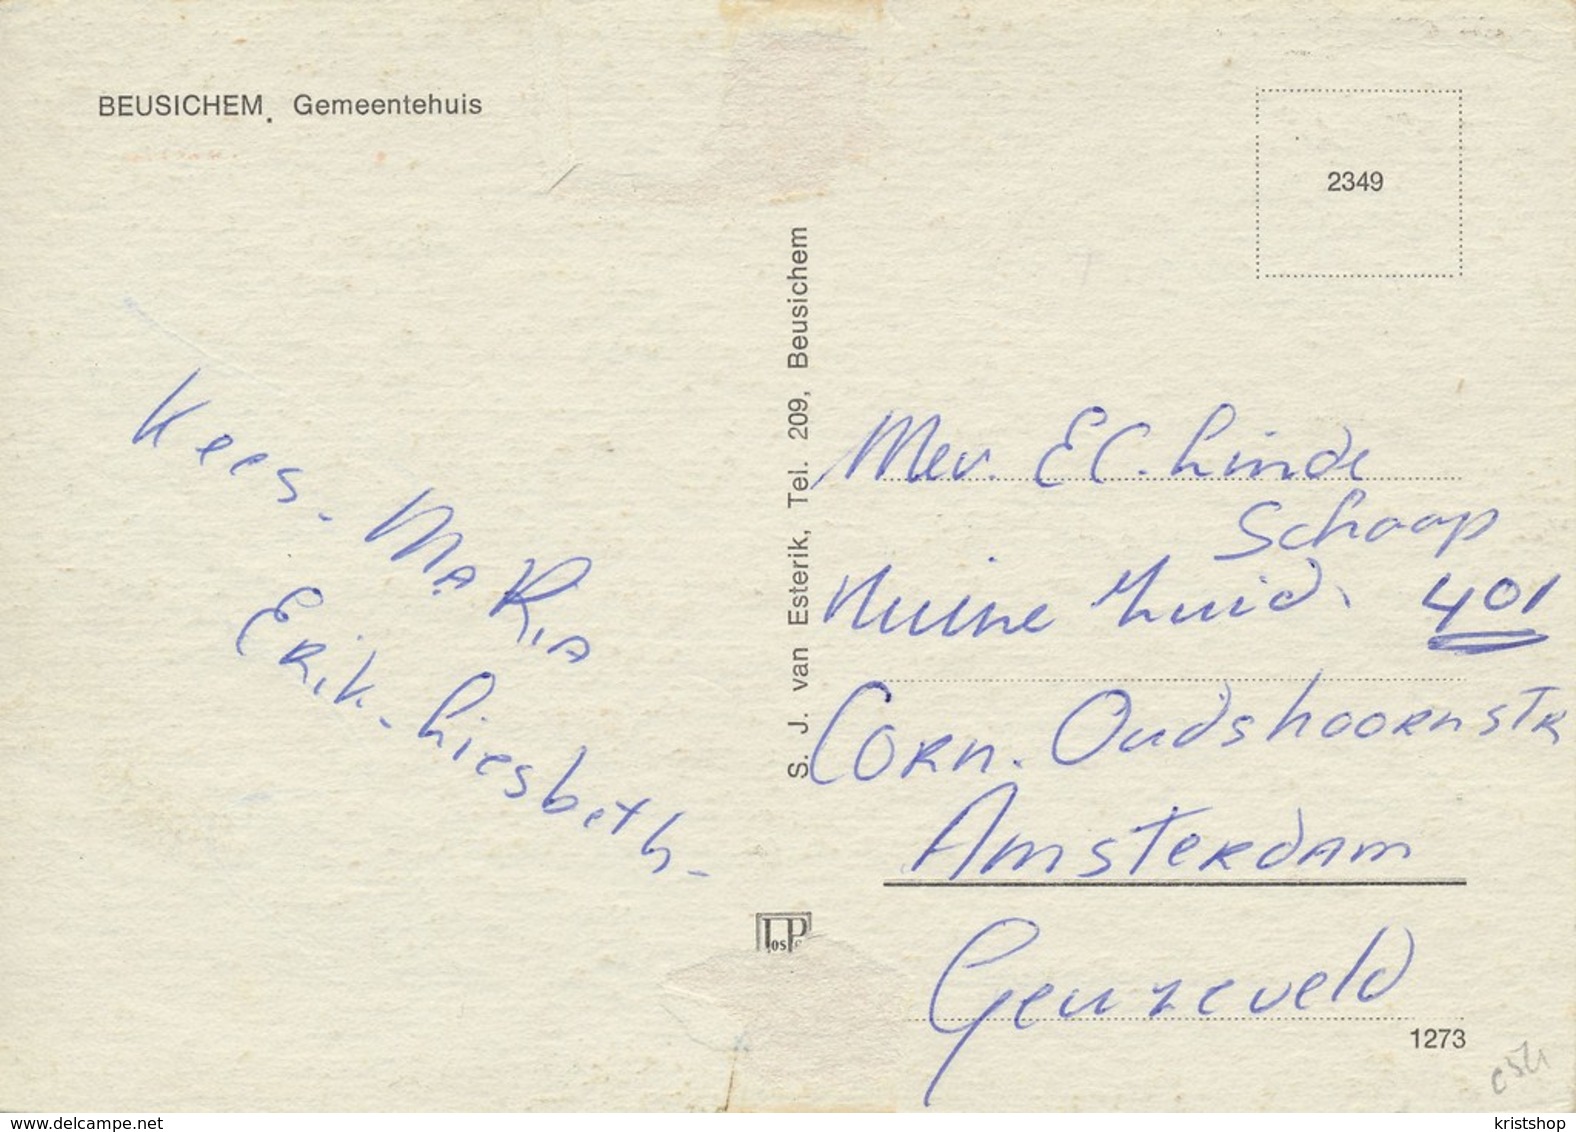 BEUSICHEM. Gemeentehuis
2349
S. J. van Esterik, Tel. 209, Beusichem
Kees - MaRia
Erik - Liesbeth -
Mev. E C. Linde
Schaap
Huize Zuid. 401
Corn. Oudshoornstr
Amsterdam
Geuzeveld
1273
www.delcampe.net
kristshop